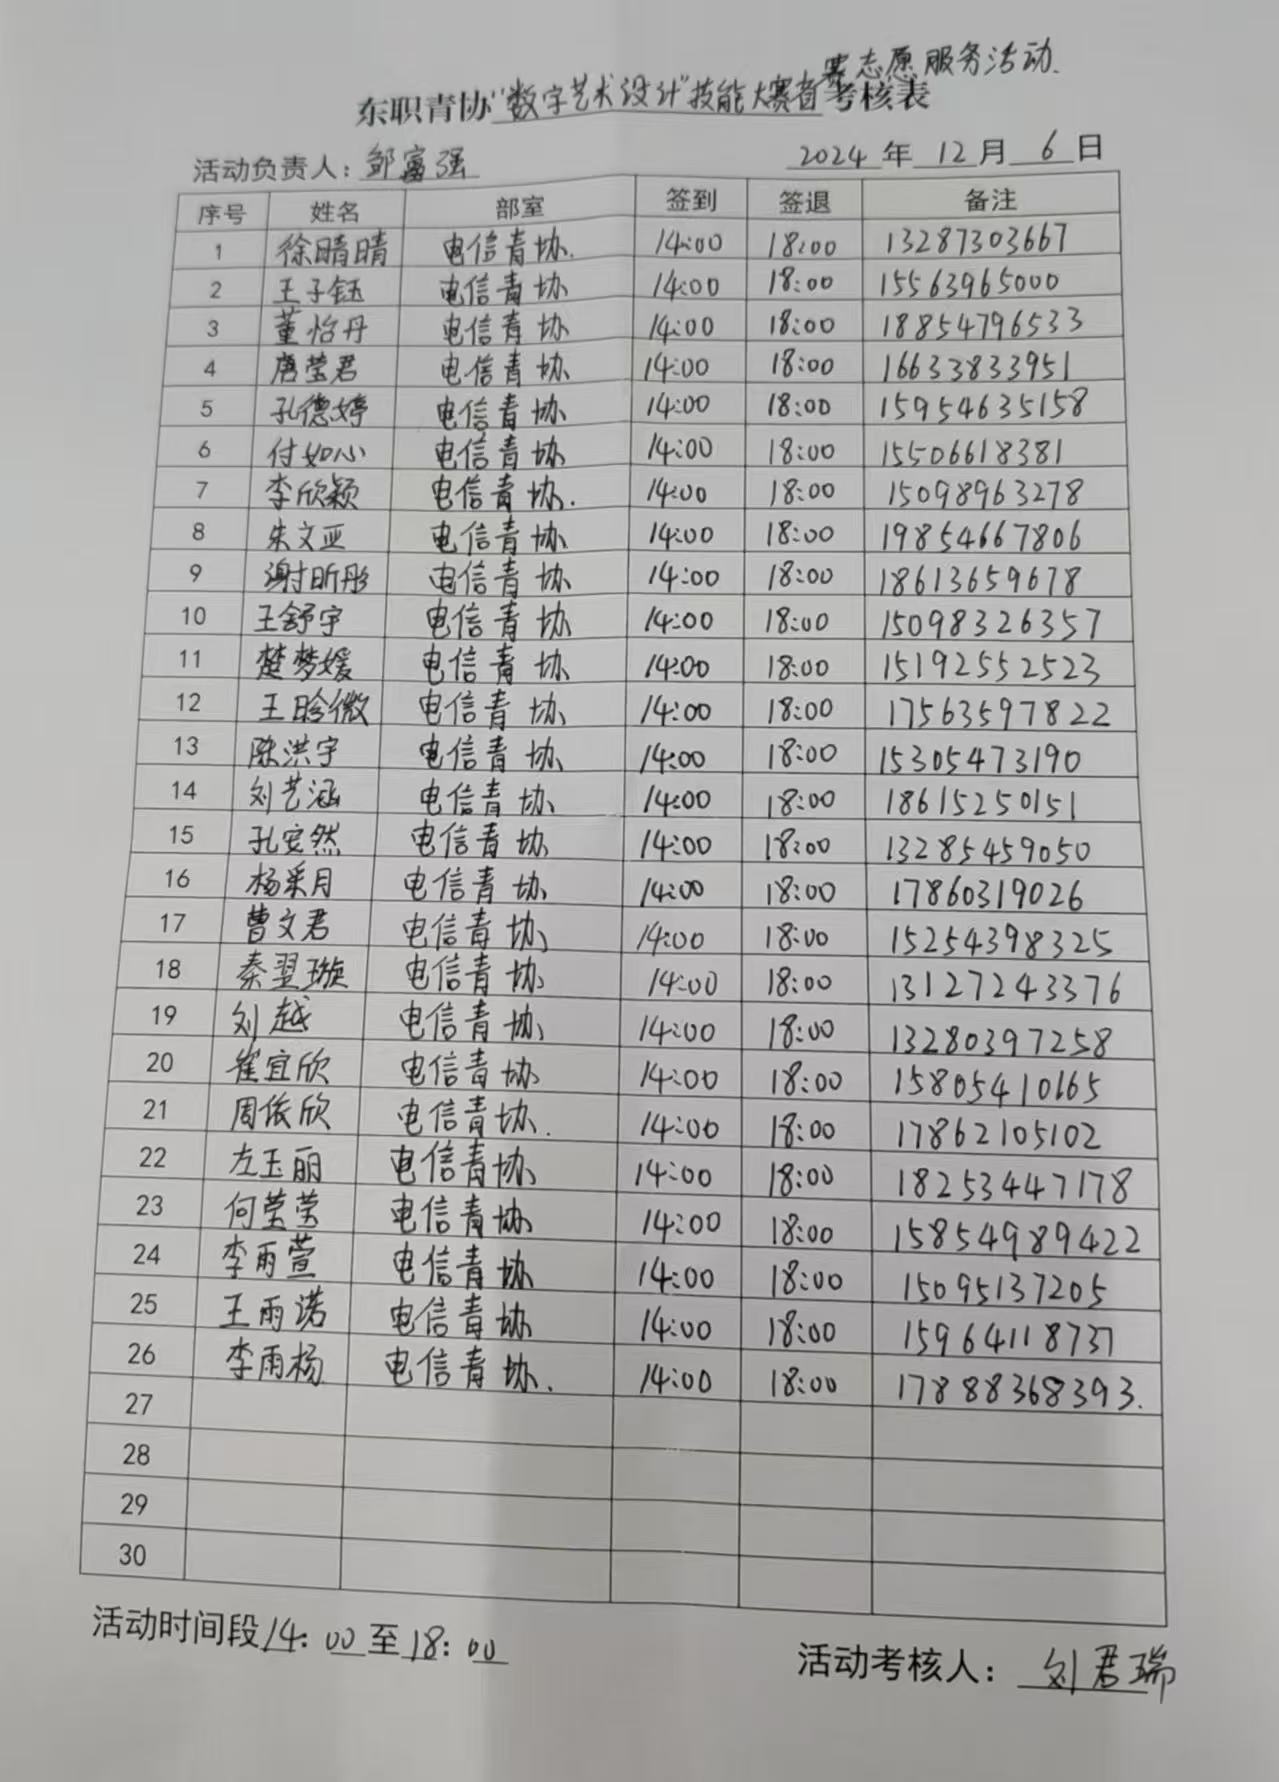 赛志愿服务活动.
东职青协“数字艺术设计”技能大赛省考核表
活动负责人：邹富强 2024 年 12 月 6 日
序号 姓名 部室 签到 签退 备注
1 徐晴晴 电信青协. 14:00 18:00 13287303667
2 王子钰 电信青协 14:00 18:00 15563965000
3 董怡丹 电信青协 14:00 18:00 18854796533
4 唐莹君 电信青协 14:00 18:00 16633833951
5 孔德婷 电信青协 14:00 18:00 15954635158
6 付如心 电信青协 14:00 18:00 15506618381
7 李欣颖 电信青协. 14:00 18:00 15098963278
8 朱文亚 电信青协 14:00 18:00 19854667806
9 谢昕彤 电信青协 14:00 18:00 18613659678
10 王舒宇 电信青协 14:00 18:00 15098326357
11 楚梦媛 电信青协 14:00 18:00 15192552523
12 王晗微 电信青协 14:00 18:00 17563597822
13 陈洪宇 电信青协 14:00 18:00 15305473190
14 刘艺涵 电信青协 14:00 18:00 18615250151
15 孔安然 电信青协 14:00 18:00 13285459050
16 杨采月 电信青协 14:00 18:00 17860319026
17 曹文君 电信青协 14:00 18:00 15254398325
18 秦翌璇 电信青协 14:00 18:00 13127243376
19 刘越 电信青协 14:00 18:00 13280397258
20 崔宜欣 电信青协 14:00 18:00 15805410165
21 周依欣 电信青协. 14:00 18:00 17862105102
22 左玉丽 电信青协 14:00 18:00 18253447178
23 何莹莹 电信青协 14:00 18:00 15854989422
24 李雨萱 电信青协 14:00 18:00 15095137205
25 王雨诺 电信青协 14:00 18:00 15964118737
26 李雨杨 电信青协. 14:00 18:00 17888368393.
27
28
29
30
活动时间段14：00至18：00 活动考核人：刘君瑞